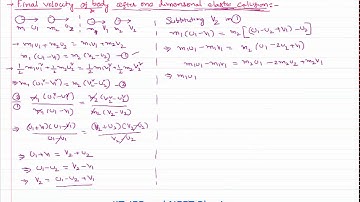 → Final velocity of body after one dimensional elastic collision:-
m₁ u₁ m₂ u₂ m₁ v₁ m₂ v₂
→ m₁u₁+m₂u₂ = m₁v₁+m₂v₂
m₁(u₁-v₁) = m₂(v₂-u₂) —①
→ ½m₁u₁²+½m₂u₂² = ½m₁v₁²+½m₂v₂²
⇒ m₁(u₁²-v₁²) = m₂(v₂²-u₂²) —②
②/① m₁(u₁²-v₁²)/m₁(u₁-v₁) = m₂(v₂²-u₂²)/m₂(v₂-u₂)
⇒ (u₁+v₁)(u₁-v₁)/u₁-v₁ = (v₂+u₂)(v₂-u₂)/v₂-u₂
⇒ u₁+v₁ = v₂+u₂
⇒ u₁-u₂ = v₂-v₁
⇒ v₂ = u₁-u₂+v₁
Substituting v₂ in ①
m₁(u₁-v₁) = m₂[(u₁-u₂+v₁)-u₂]
⇒ m₁u₁-m₁v₁ = m₂(u₁-2u₂+v₁)
⇒ m₁u₁-m₁v₁ = m₂u₁-2m₂u₂+m₂v₁
⇒ m₁u₁